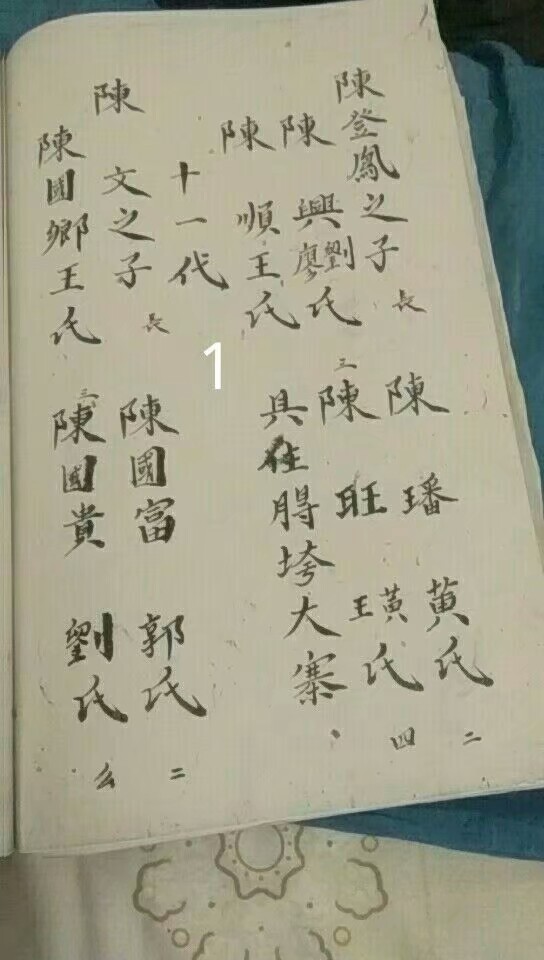 陳登鳳之子 長 陳璠 黄氏 二
陳興劉廖氏 三 陳旺 黃王氏 四
陳順王氏 具住垮大寨、
十一代
陳文之子 長 陳國富 郭氏 二
陳國鄉王氏 三 陳國貴 劉氏 么
1